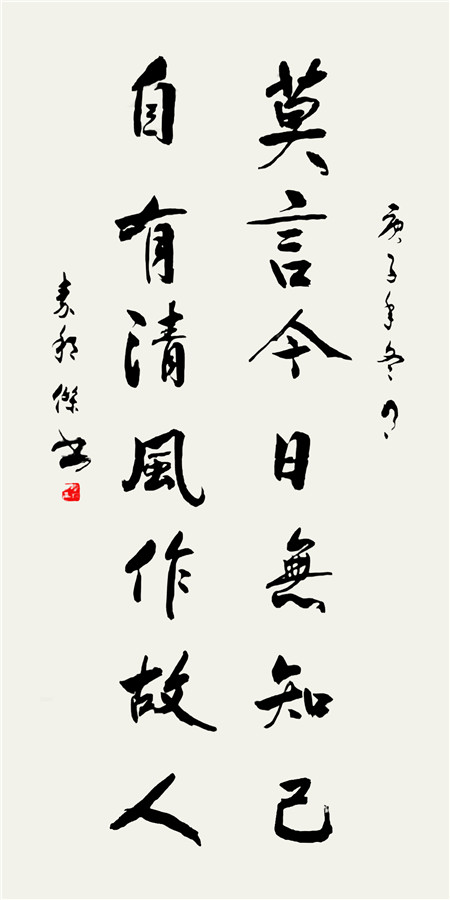 庚子年冬月
莫言今日無知己
自有清風作故人
傑書